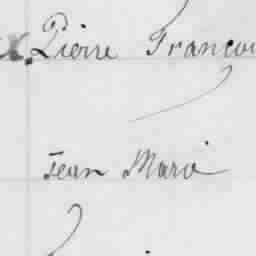 Pierre Francoi
Jean Marie